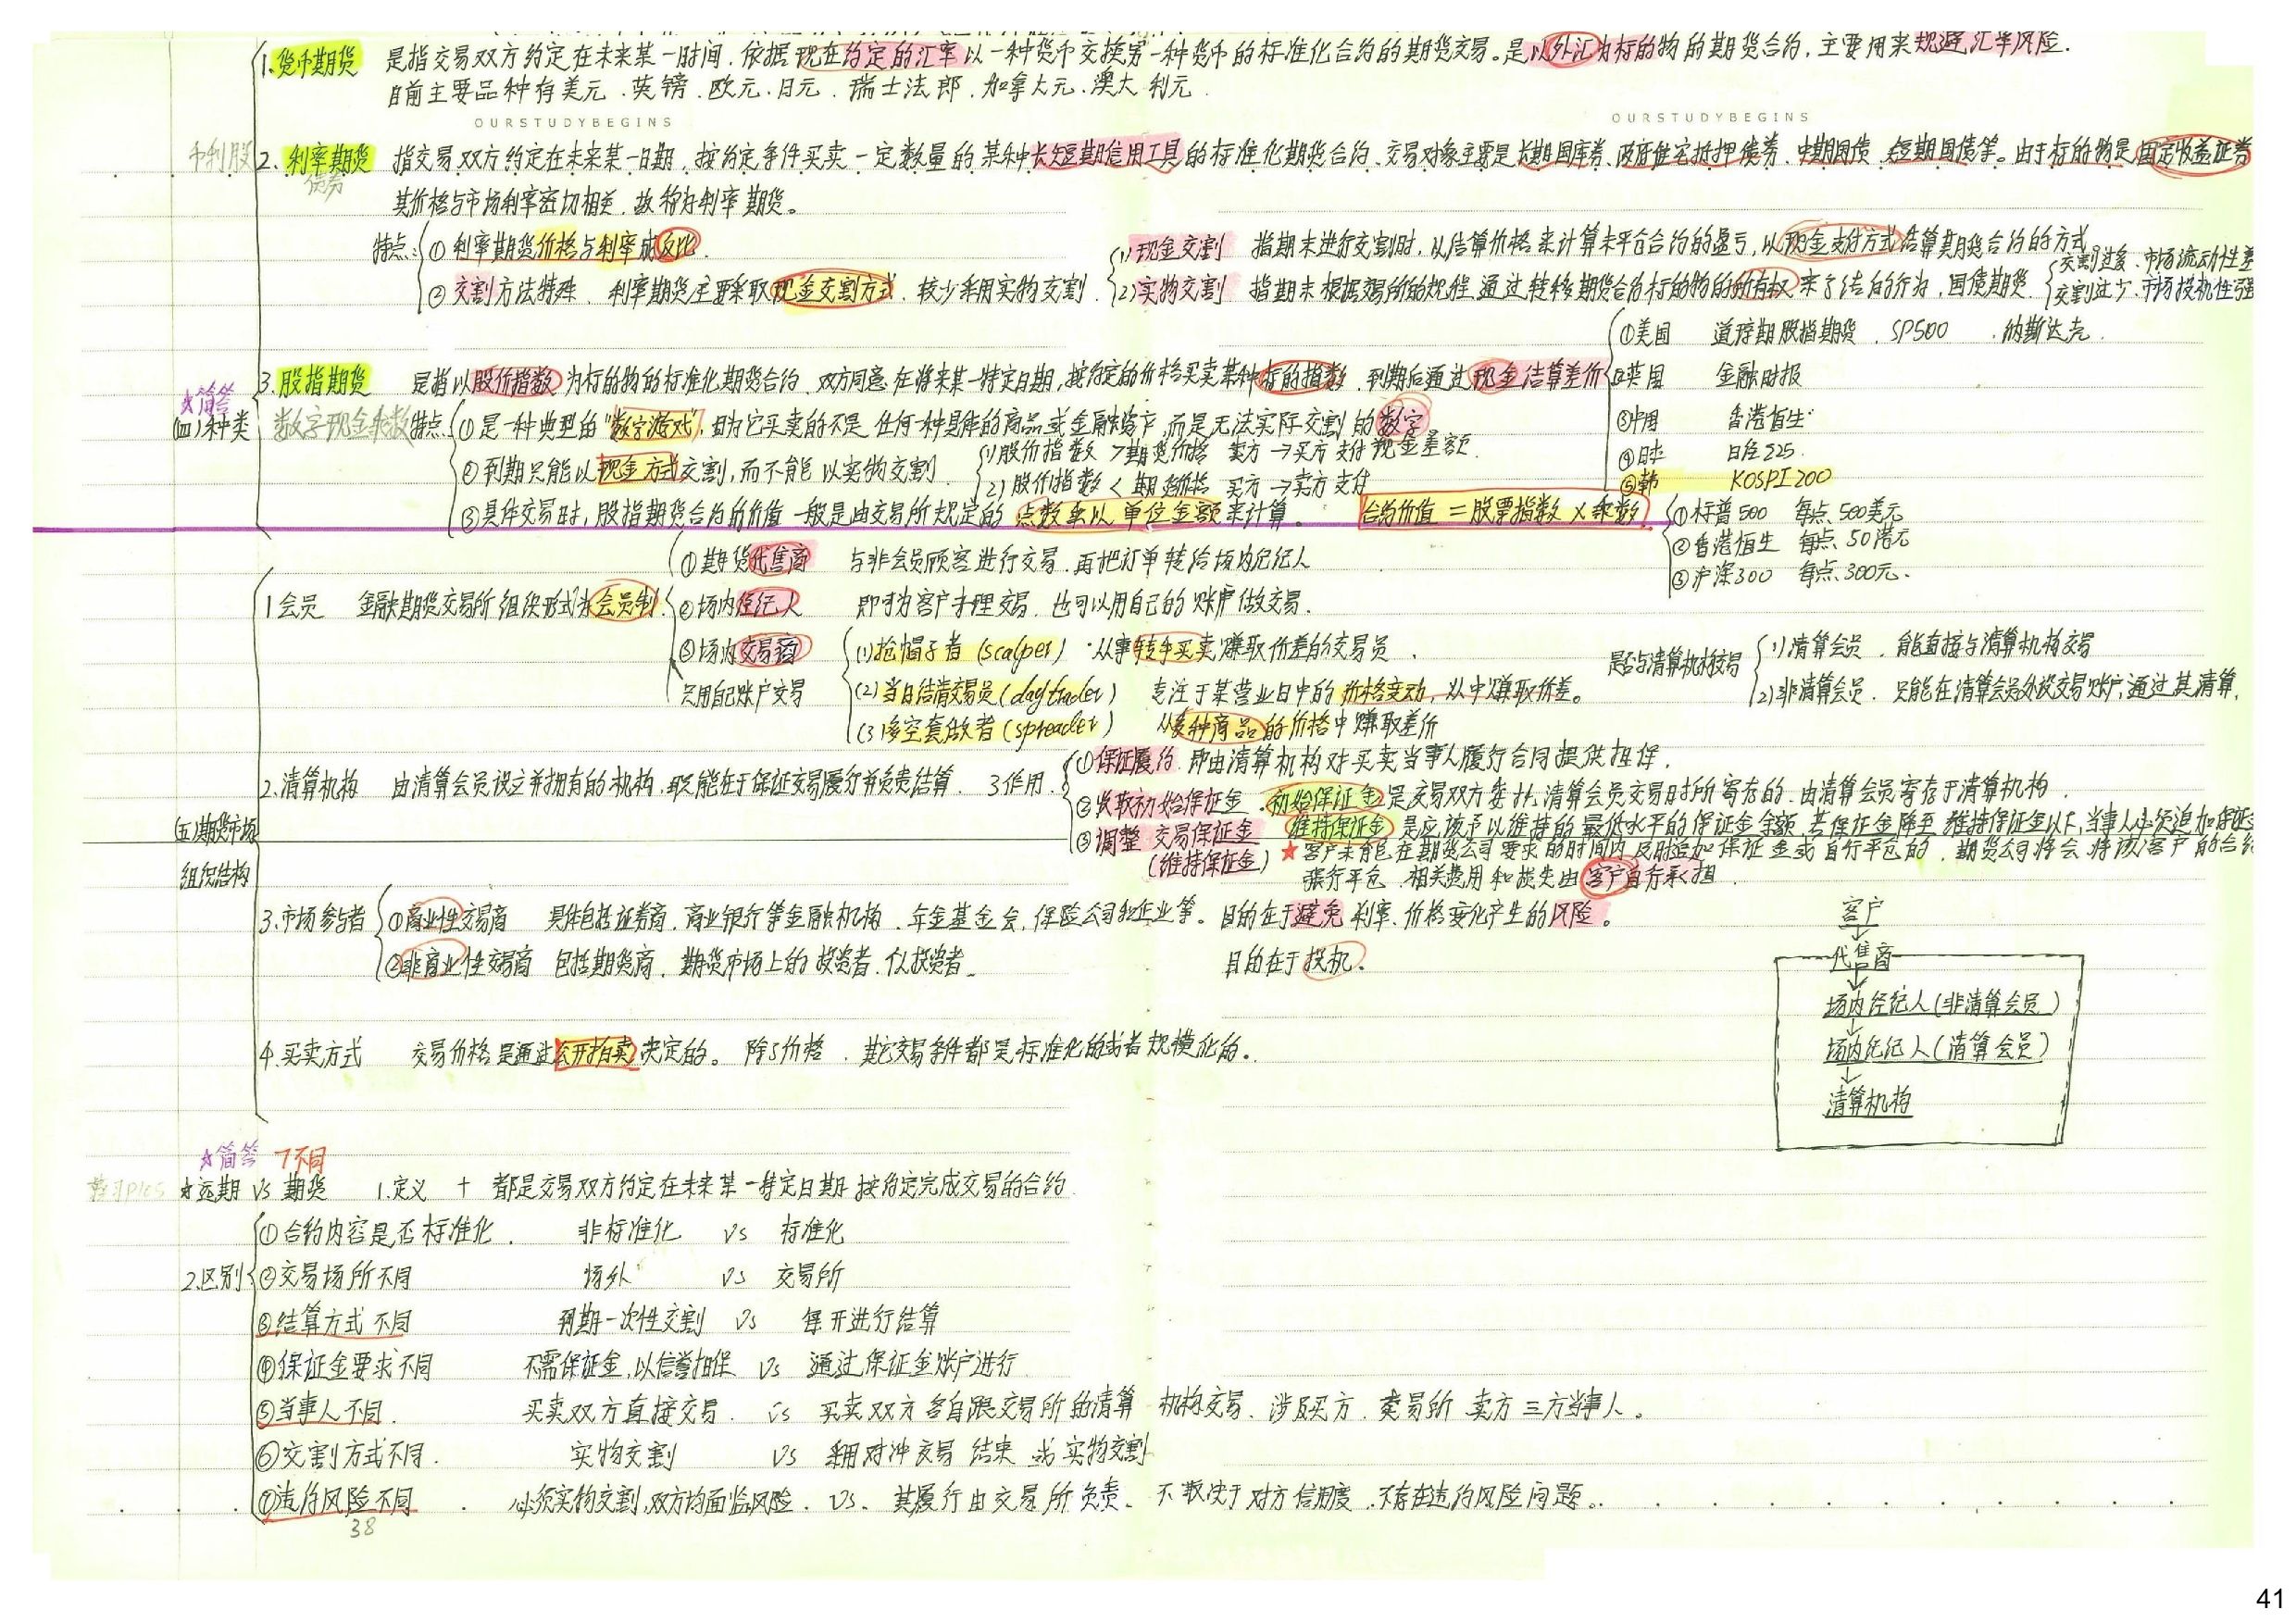 1.货币期货 是指交易双方约定在未来某一时间,依据现在约定的汇率以一种货币交换另一种货币的标准化合约的期货交易。是以外汇为标的物的期货合约,主要用来规避汇率风险.
目前主要品种有美元、英镑、欧元、日元、瑞士法郎、加拿大元、澳大利元.
OURSTUDYBEGINS OURSTUDYBEGINS
币利股
2.利率期货 指交易双方约定在未来某一日期,按约定条件买卖一定数量的某种长短期信用工具的标准化期货合约,交易对象主要是长期国库券、政府住宅抵押债券、中期国债、短期国债等。由于标的物是固定收益证券
债券
其价格与市场利率密切相关,故称为利率期货。
特点: ①利率期货价格与利率成反比.
(1)现金交割 指期末进行交割时,以结算价格来计算未平仓合约的盈亏,以现金支付方式结算期货合约的方式
②交割方法特殊. 利率期货主要采取现金交割方式,较少采用实物交割.
(2)实物交割 指期末根据交易所的规程通过转移期货合约标的物的所有权来了结的行为,国债期货
交割过多、市场流动性差
交割过少、市场投机性强
3.股指期货 是指以股价指数为标的物的标准化期货合约,双方同意在将来某一特定日期,按约定的价格买卖某种标的指数,到期后通过现金结算差价
①美国 道琼斯股指期货、SP500、纳斯达克.
②英国 金融时报
③中国 香港恒生
④日本 日经225.
⑤韩 KOSPI 200
☆简答
(四)种类
数字现金乘数
特点 ①是一种典型的"数字游戏",因为它买卖的不是任何一种具体的商品或金融资产,而是无法实际交割的数字
②到期只能以现金方式交割,而不能以实物交割.
(1)股价指数>期货价格 卖方→买方支付现金差额.
(2)股价指数<期货价格 买方→卖方支付
③具体交易时,股指期货合约的价值一般是由交易所规定的点数乘以单位金额来计算。 合约价值=股票指数×乘数
①标普500 每点500美元
②香港恒生 每点50港元
③沪深300 每点300元.
1会员 金融期货交易所组织形式为会员制
①期货代售商 与非会员顾客进行交易,再把订单转给场内经纪人
②场内经纪人 即可为客户办理交易,也可以用自己的账户做交易.
③场内交易商
只用自己账户交易
(1)抢帽子者(scalper) 从事转手买卖赚取价差的交易员.
(2)当日结清交易员(daytrader) 专注于某营业日中的价格变动,从中赚取价差。
(3)多空套做者(spreader) 从多种商品的价格中赚取差价
是否与清算机构交易
(1)清算会员. 能直接与清算机构交易
(2)非清算会员. 只能在清算会员处设交易账户,通过其清算.
2.清算机构 由清算会员设立并拥有的机构,职能在于保证交易履行并负责结算. 3作用.
①保证履约. 即由清算机构对买卖当事人履行合同提供担保.
②收取初始保证金. 初始保证金是交易双方委托清算会员交易时所寄存的,由清算会员寄存于清算机构.
③调整交易保证金 维持保证金是应该予以维持的最低水平的保证金余额,若保证金降至维持保证金以下,当事人必须追加保证金
(维持保证金) ★客户未有能在期货公司要求的时间内及时追加保证金或自行平仓的,期货公司将会将该客户的合约
强行平仓,相关费用和损失由客户自行承担.
(五)期货市场
组织结构
3.市场参与者 ①商业性交易商 具体包括证券商,商业银行等金融机构、年金基金会,保险公司和企业等。目的在于避免利率、价格变化产生的风险。
②非商业性交易商 包括期货商,期货市场上的投资者、 目的在于投机.
客户
↓
代售商
↓
场内经纪人(非清算会员)
↓
场内经纪人(清算会员)
↓
清算机构
4.买卖方式 交易价格是通过公开拍卖决定的。除了价格,其它交易条件都是标准化的或者规模化的.
☆简答 7不同
☆远期 vs 期货 1.定义 + 都是交易双方约定在未来某一特定日期按约定完成交易的合约
2.区别
①合约内容是否标准化. 非标准化 vs 标准化
②交易场所不同 场外 vs 交易所
③结算方式不同 到期一次性交割 vs 每天进行结算
④保证金要求不同 不需保证金,以信誉担保 vs 通过保证金账户进行
⑤当事人不同. 买卖双方直接交易. vs 买卖双方各自跟交易所的清算机构交易、涉及买方、交易所 卖方三方当事人。
⑥交割方式不同. 实物交割 vs 采用对冲交易结束或实物交割
⑦违约风险不同. 必须实物交割,双方均面临风险. vs. 其履行由交易所负责、不取决于对方信用度,不存在违约风险问题.
38
41